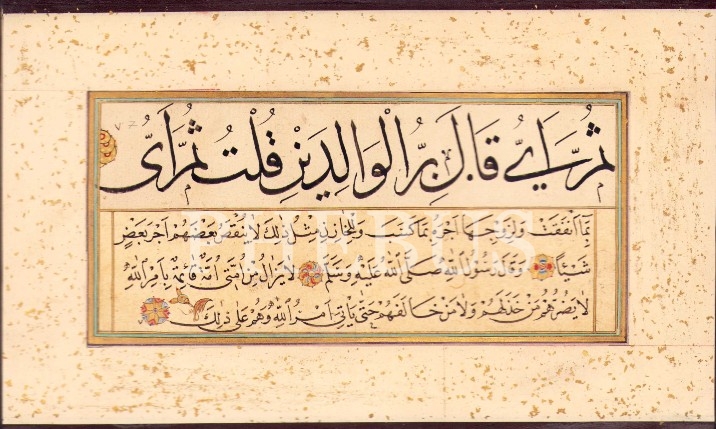 ثُمَّ أَيٌّ قَالَ بِرُّ الْوَالِدَيْنِ قُلْتُ ثُمَّ أَيٌّ
بِمَا أَنْفَقَتْ وَلِزَوْجِهَا أَجْرُهُ بِمَا كَسَبَ وَلِلْخَازِنِ مِثْلُ ذَلِكَ لَا يَنْقُصُ بَعْضُهُمْ أَجْرَ بَعْضٍ
شَيْئًا وَقَالَ رَسُولُ اللَّهِ صَلَّى اللَّهُ عَلَيْهِ وَسَلَّمَ لَا يَزَالُ مِنْ أُمَّتِي أُمَّةٌ قَائِمَةٌ بِأَمْرِ اللَّهِ
لَا يَضُرُّهُمْ مَنْ خَذَلَهُمْ وَلَا مَنْ خَالَفَهُمْ حَتَّى يَأْتِيَ أَمْرُ اللَّهِ وَهُمْ عَلَى ذَلِكَ
PHEBUS